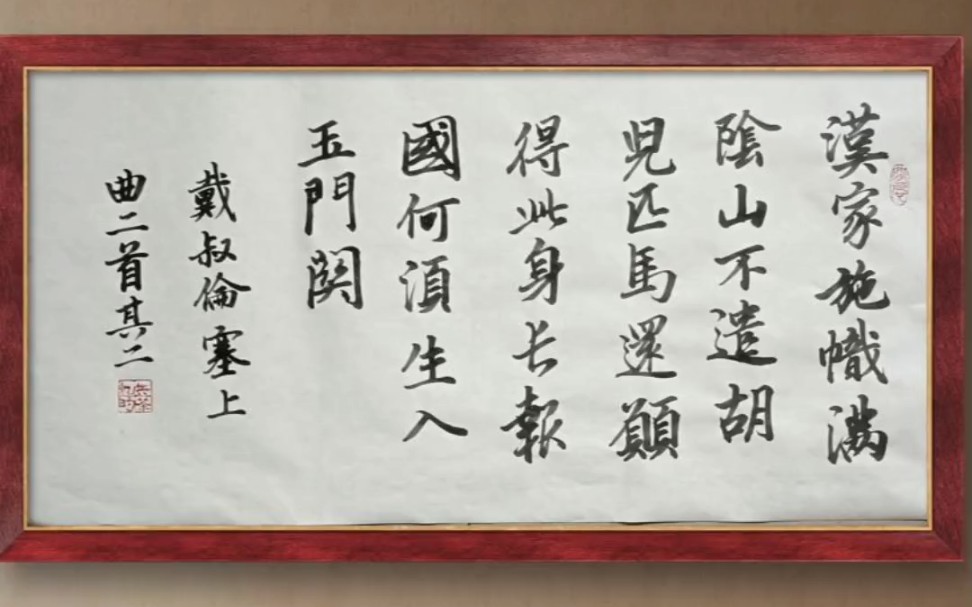 漢家施幟满
陰山不遣胡
兒匹馬還願
得此身长報
國何須生入
玉門関
戴叔倫塞上
曲二首其二